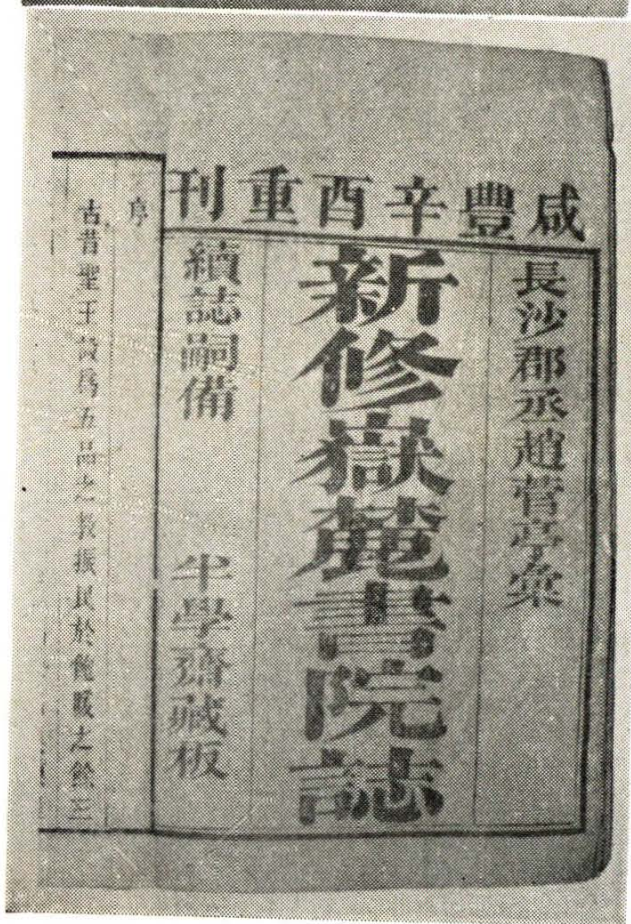 咸豐辛酉重刊
長沙郡丞趙菅亭彙
新修嶽麓書院誌
續誌嗣備
半學齋藏板
序
古昔聖王敦爲五品之教振民於飽暖之餘三